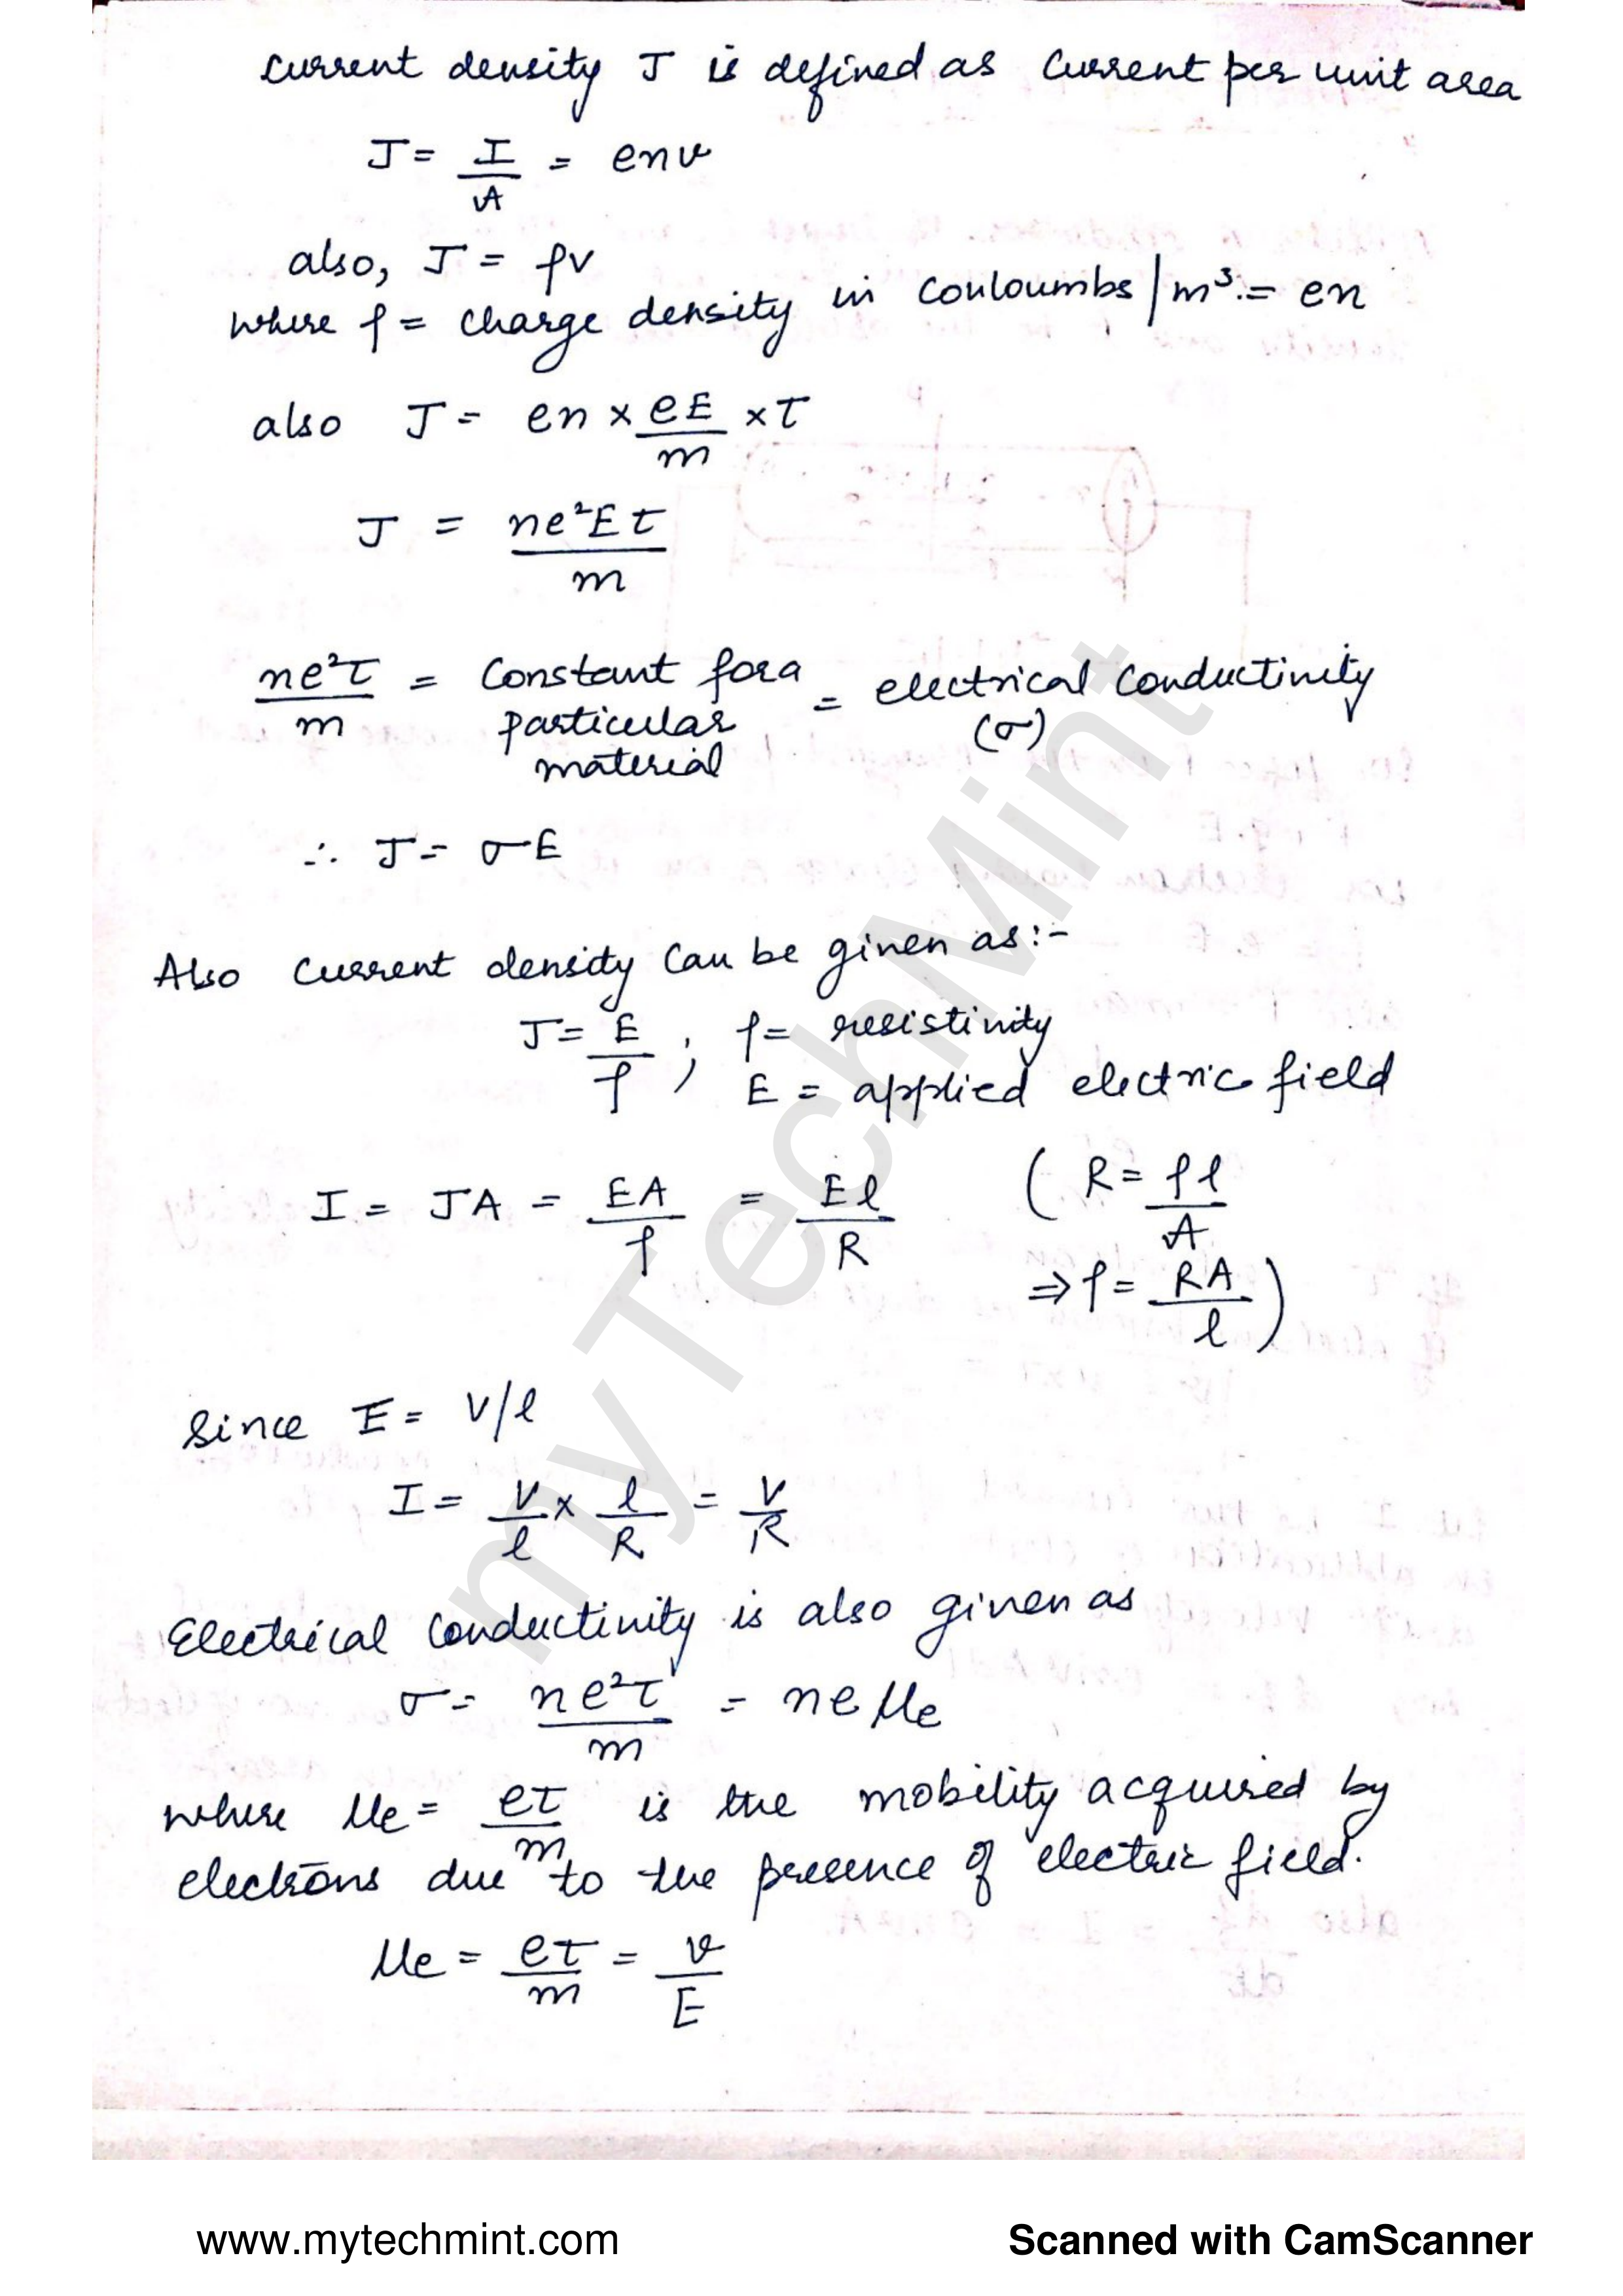 current density J is defined as current per unit area
J = I/A = env
also, J = ρv
where ρ = charge density in couloumbs/m³ = en
also J = en × eE/m × τ
J = ne²Eτ/m
ne²τ/m = constant for a particular material = electrical conductivity (σ)
∴ J = σE
Also current density can be given as:-
J = E/ρ ; ρ = resistivity
E = applied electric field
I = JA = EA/ρ = El/R ( R = ρl/A
⇒ ρ = RA/l )
Since E = V/l
I = V/l × l/R = V/R
Electrical conductivity is also given as
σ = ne²τ/m = neμe
where μe = eτ/m is the mobility acquired by
electrons due to the presence of electric field.
μe = eτ/m = v/E
myTechMint
www.mytechmint.com
Scanned with CamScanner